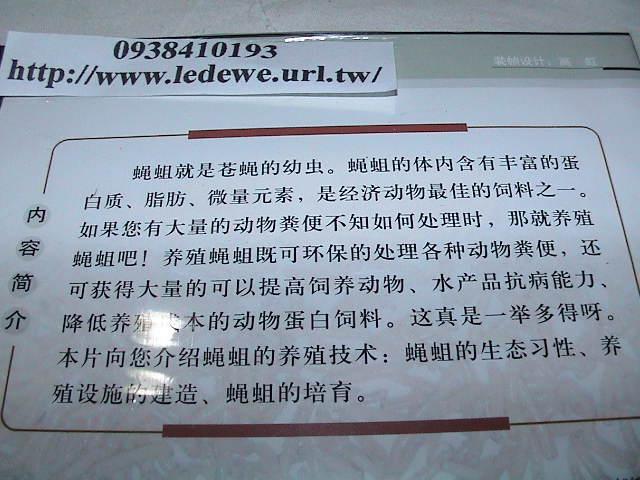 0938410193
http://www.ledewe.url.tw/
装帧设计：高 虹
内容简介
蝇蛆就是苍蝇的幼虫。蝇蛆的体内含有丰富的蛋
白质、脂肪、微量元素，是经济动物最佳的饲料之一。
如果您有大量的动物粪便不知如何处理时，那就养殖
蝇蛆吧！养殖蝇蛆既可环保的处理各种动物粪便，还
可获得大量的可以提高饲养动物、水产品抗病能力、
降低养殖成本的动物蛋白饲料。这真是一举多得呀。
本片向您介绍蝇蛆的养殖技术：蝇蛆的生态习性、养
殖设施的建造、蝇蛆的培育。